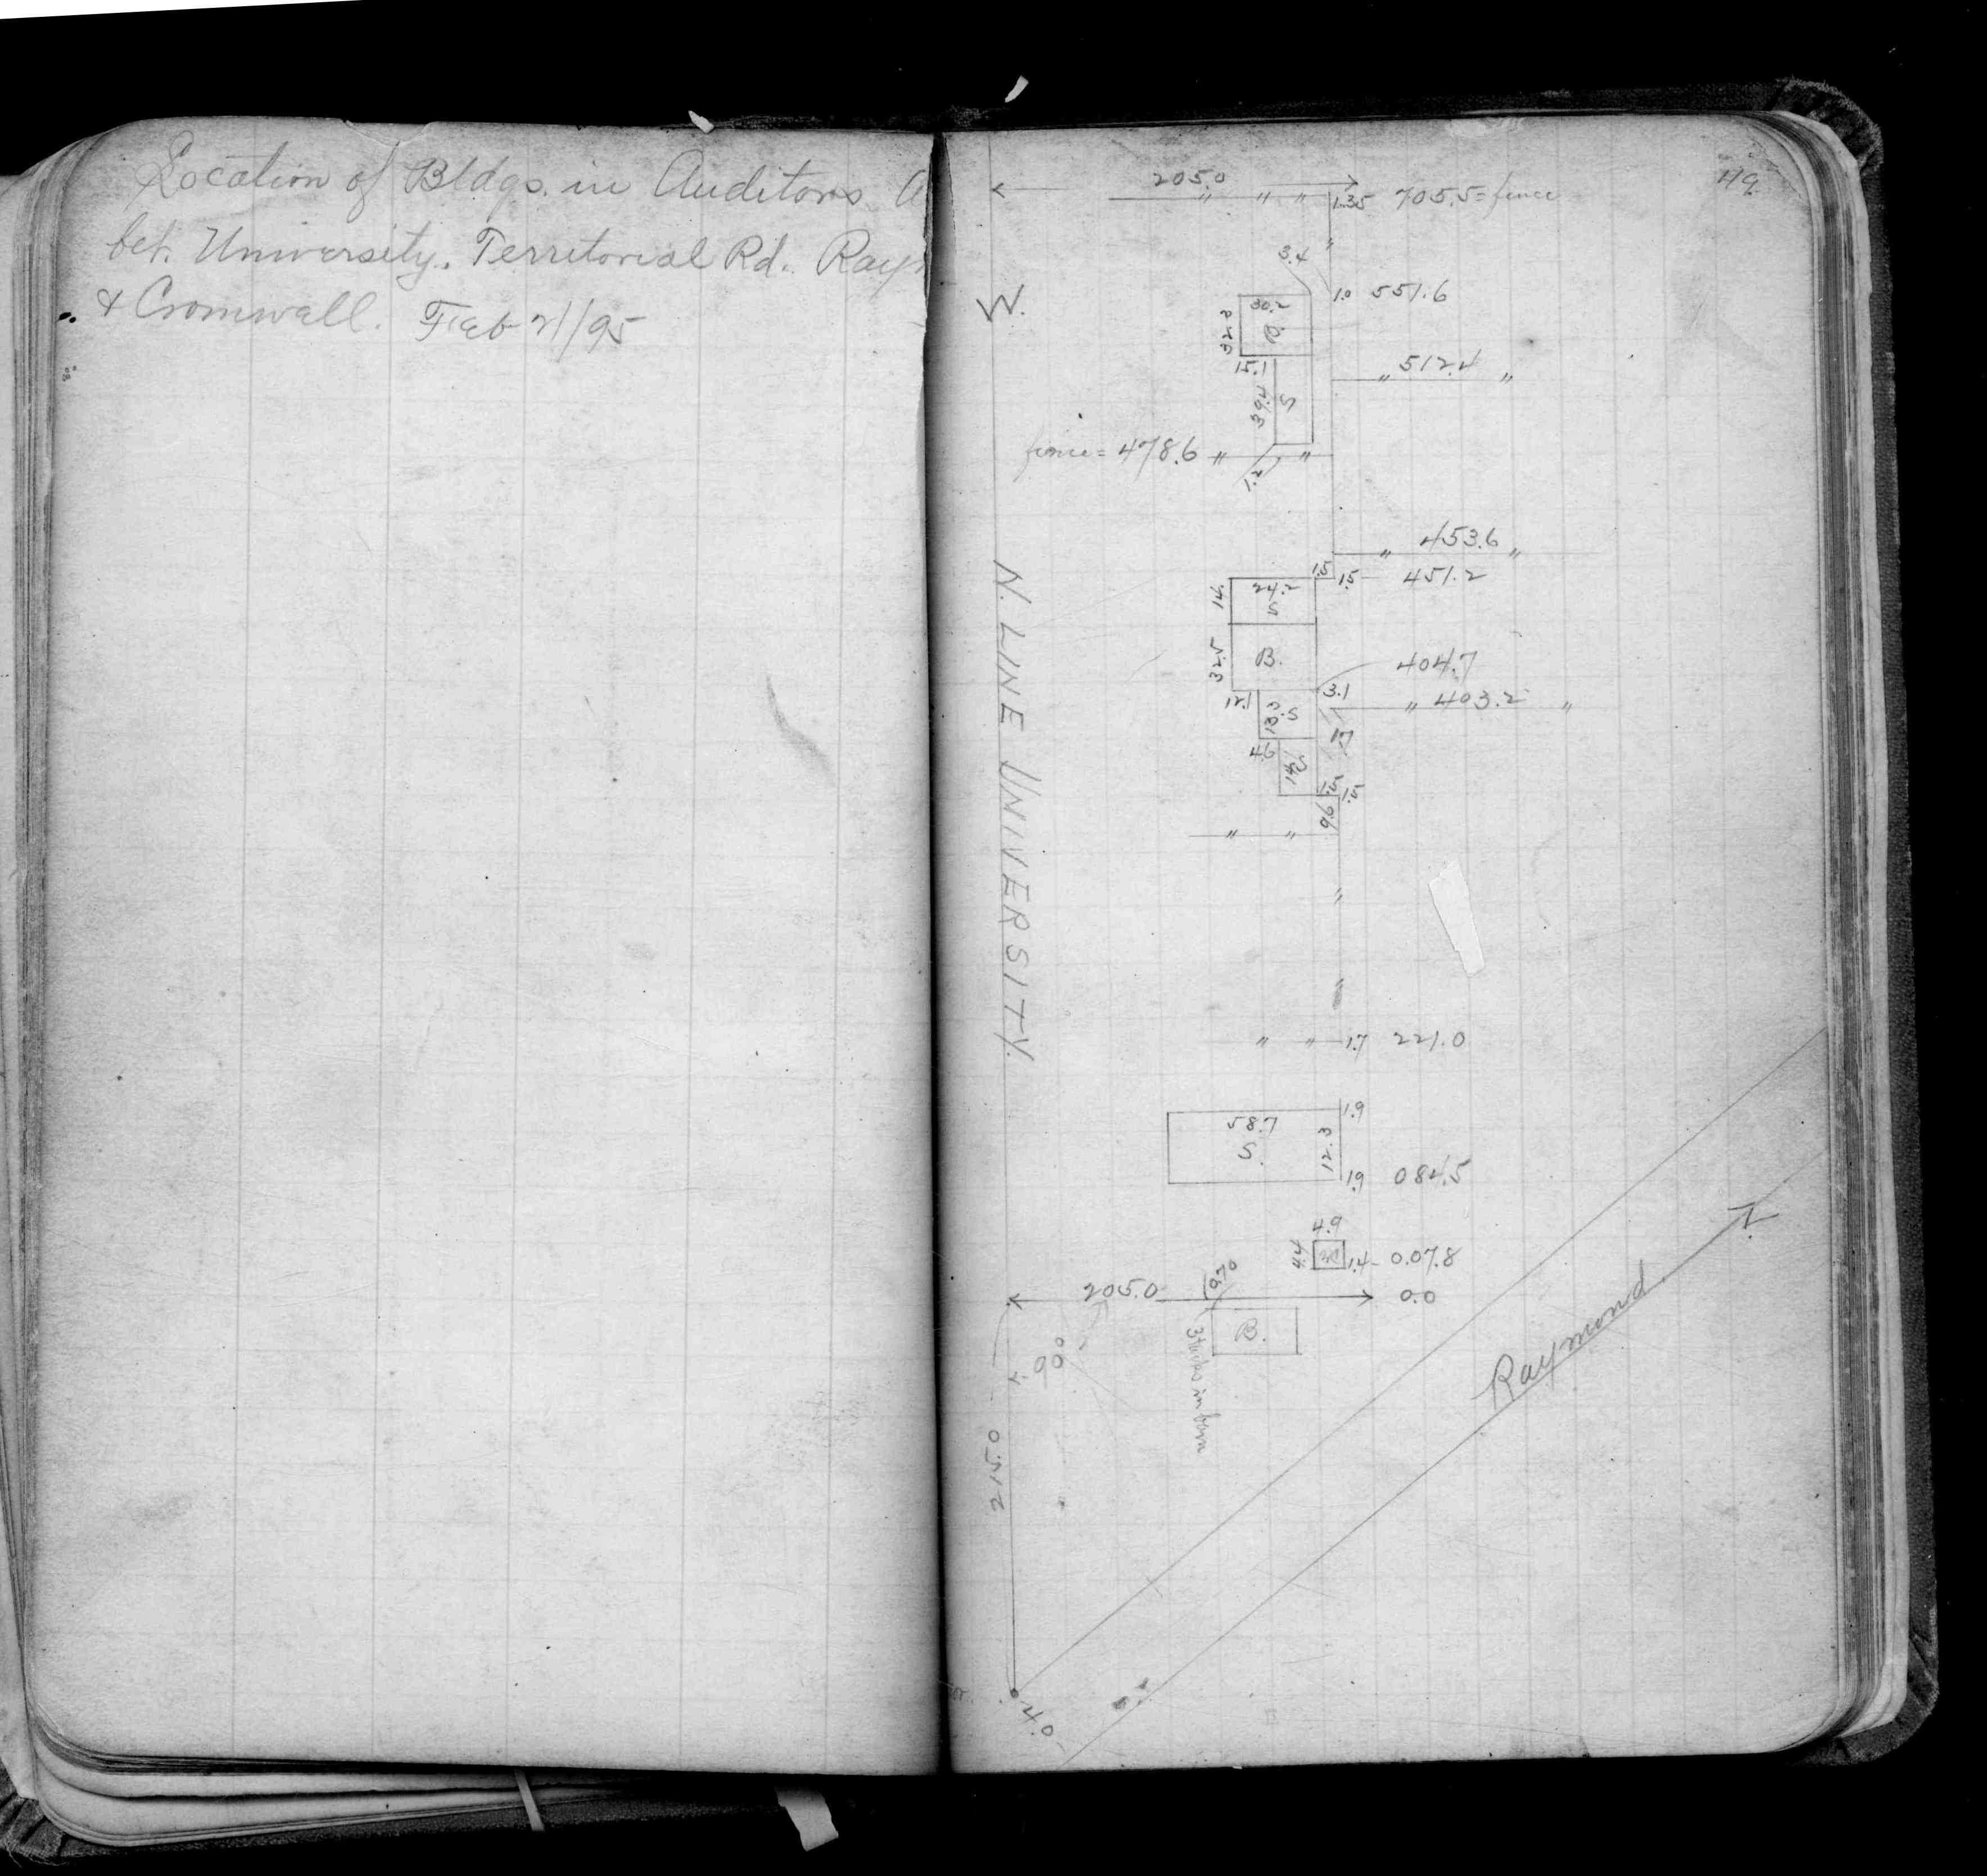 Location of Bldgs. in Auditors A
bet. University, Territorial Rd. Ray
& Cromwall. Feb 21/95
49.
205.0
" " " 1.35 705.5 = fence
"
3.4
1.0 551.6
30.2
32.2
B.
15.1
512.4
" "
39.4
S
fence = 478.6 " "
1.2
W.
453.6
" "
1.5 1.5 451.2
24.2
14.
S
32.5
B.
404.7
3.1
" 403.2 "
12.1
13.3
S.
4.6
14.
S
1.5
1.5
9.6
" "
"
N. LINE UNIVERSITY.
" " 1.7 221.0
1.9
58.7
S.
12.3
1.9 084.5
4.9
4.4
1.4 - 0.07.8
205.0
0.0
B.
215.0
Raymond
40